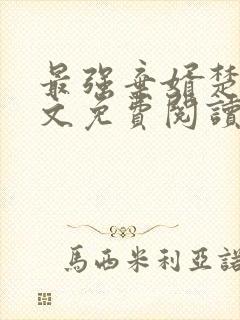 最強棄婿楚
文免費閱讀
馬西米利亞諾